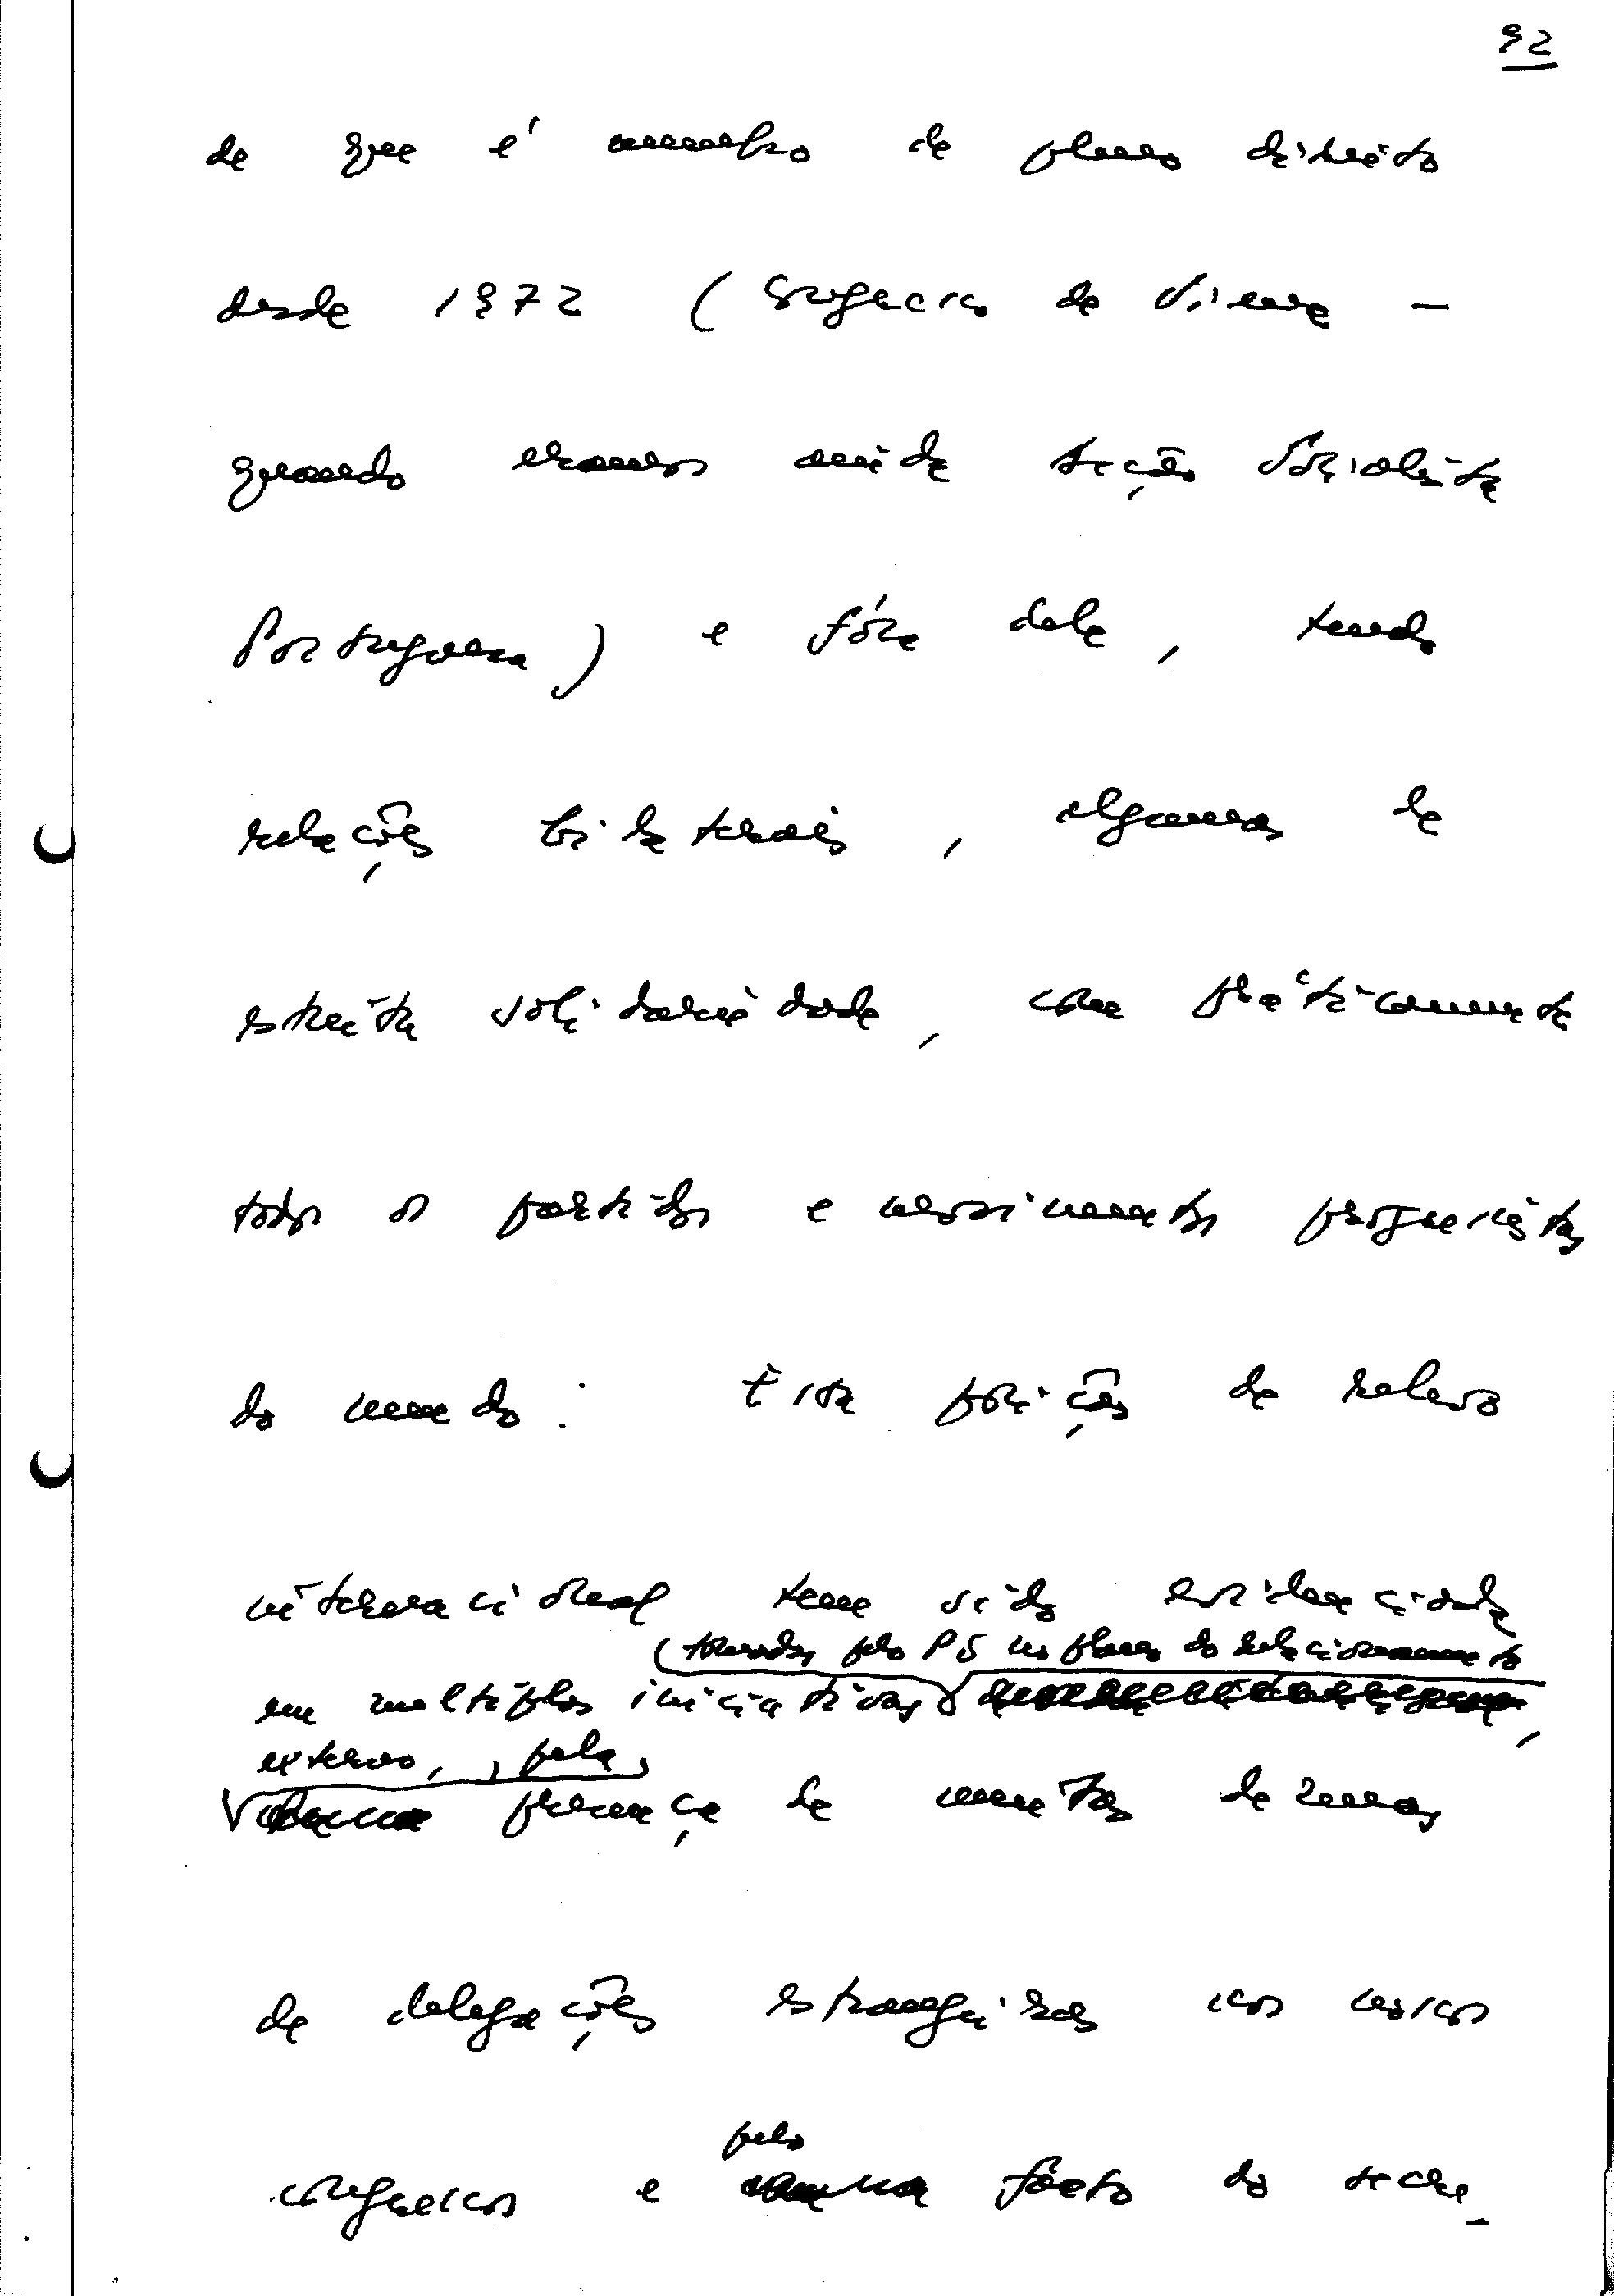 92
de que é membro de pleno direito
desde 1972 (Congresso de Viena –
quando eramos ainda Acção Socialista
Portuguesa) e fóra dela, tendo
relações bilaterais, algumas de
estreita solidariedade, com práticamente
todos os partidos e movimentos progressistas
do mundo. Essa posição de relevo
internacional tem sido evidenciada
(tomadas pelo PS no plano do relacionamento
em multiplas iniciativas
externo, pela
presença de muitas dezenas
de delegações estrangeiras aos nossos
pelo
congressos e facto do secre-